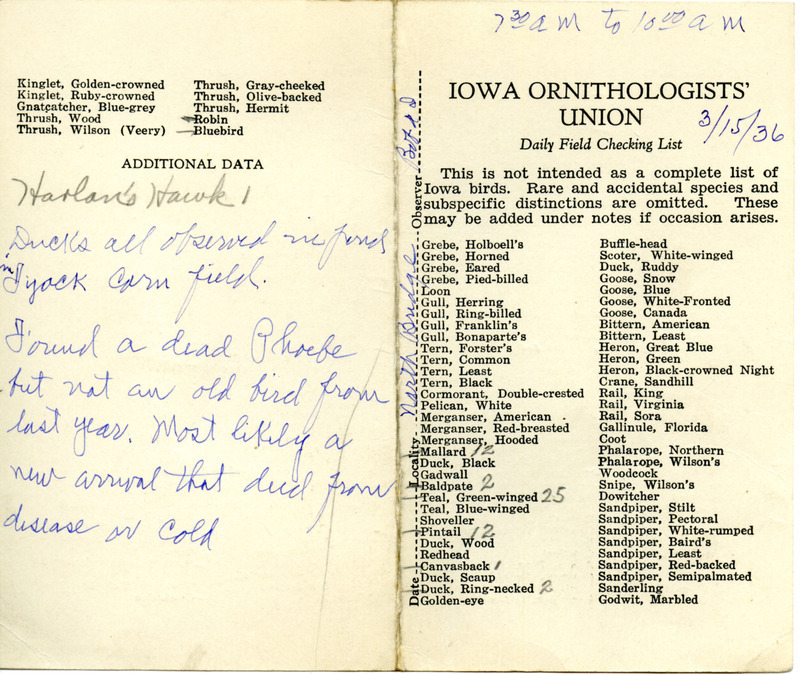 Kinglet, Golden-crowned
Kinglet, Ruby-crowned
Gnatcatcher, Blue-grey
Thrush, Wood
Thrush, Wilson (Veery)
Thrush, Gray-cheeked
Thrush, Olive-backed
Thrush, Hermit
Robin
Bluebird
ADDITIONAL DATA
Harlan's Hawk 1
Ducks all observed in pond
in Tyock corn field.
Found a dead Phoebe
but not an old bird from
last year. Most likely a
new arrival that died from
disease or cold
7 30 a m to 10 00 a m
IOWA ORNITHOLOGISTS'
UNION
3/15/36
Daily Field Checking List
This is not intended as a complete list of
Iowa birds. Rare and accidental species and
subspecific distinctions are omitted. These
may be added under notes if occasion arises.
Date Locality North Bridge Observer
Grebe, Holboell's
Grebe, Horned
Grebe, Eared
Grebe, Pied-billed
Loon
Gull, Herring
Gull, Ring-billed
Gull, Franklin's
Gull, Bonaparte's
Tern, Forster's
Tern, Common
Tern, Least
Tern, Black
Cormorant, Double-crested
Pelican, White
Merganser, American
Merganser, Red-breasted
Merganser, Hooded
Mallard 12
Duck, Black
Gadwall
Baldpate 2
Teal, Green-winged 25
Teal, Blue-winged
Shoveller
Pintail 12
Duck, Wood
Redhead
Canvasback 1
Duck, Scaup
Duck, Ring-necked 2
Golden-eye
Buffle-head
Scoter, White-winged
Duck, Ruddy
Goose, Snow
Goose, Blue
Goose, White-Fronted
Goose, Canada
Bittern, American
Bittern, Least
Heron, Great Blue
Heron, Green
Heron, Black-crowned Night
Crane, Sandhill
Rail, King
Rail, Virginia
Rail, Sora
Gallinule, Florida
Coot
Phalarope, Northern
Phalarope, Wilson's
Woodcock
Snipe, Wilson's
Dowitcher
Sandpiper, Stilt
Sandpiper, Pectoral
Sandpiper, White-rumped
Sandpiper, Baird's
Sandpiper, Least
Sandpiper, Red-backed
Sandpiper, Semipalmated
Sanderling
Godwit, Marbled